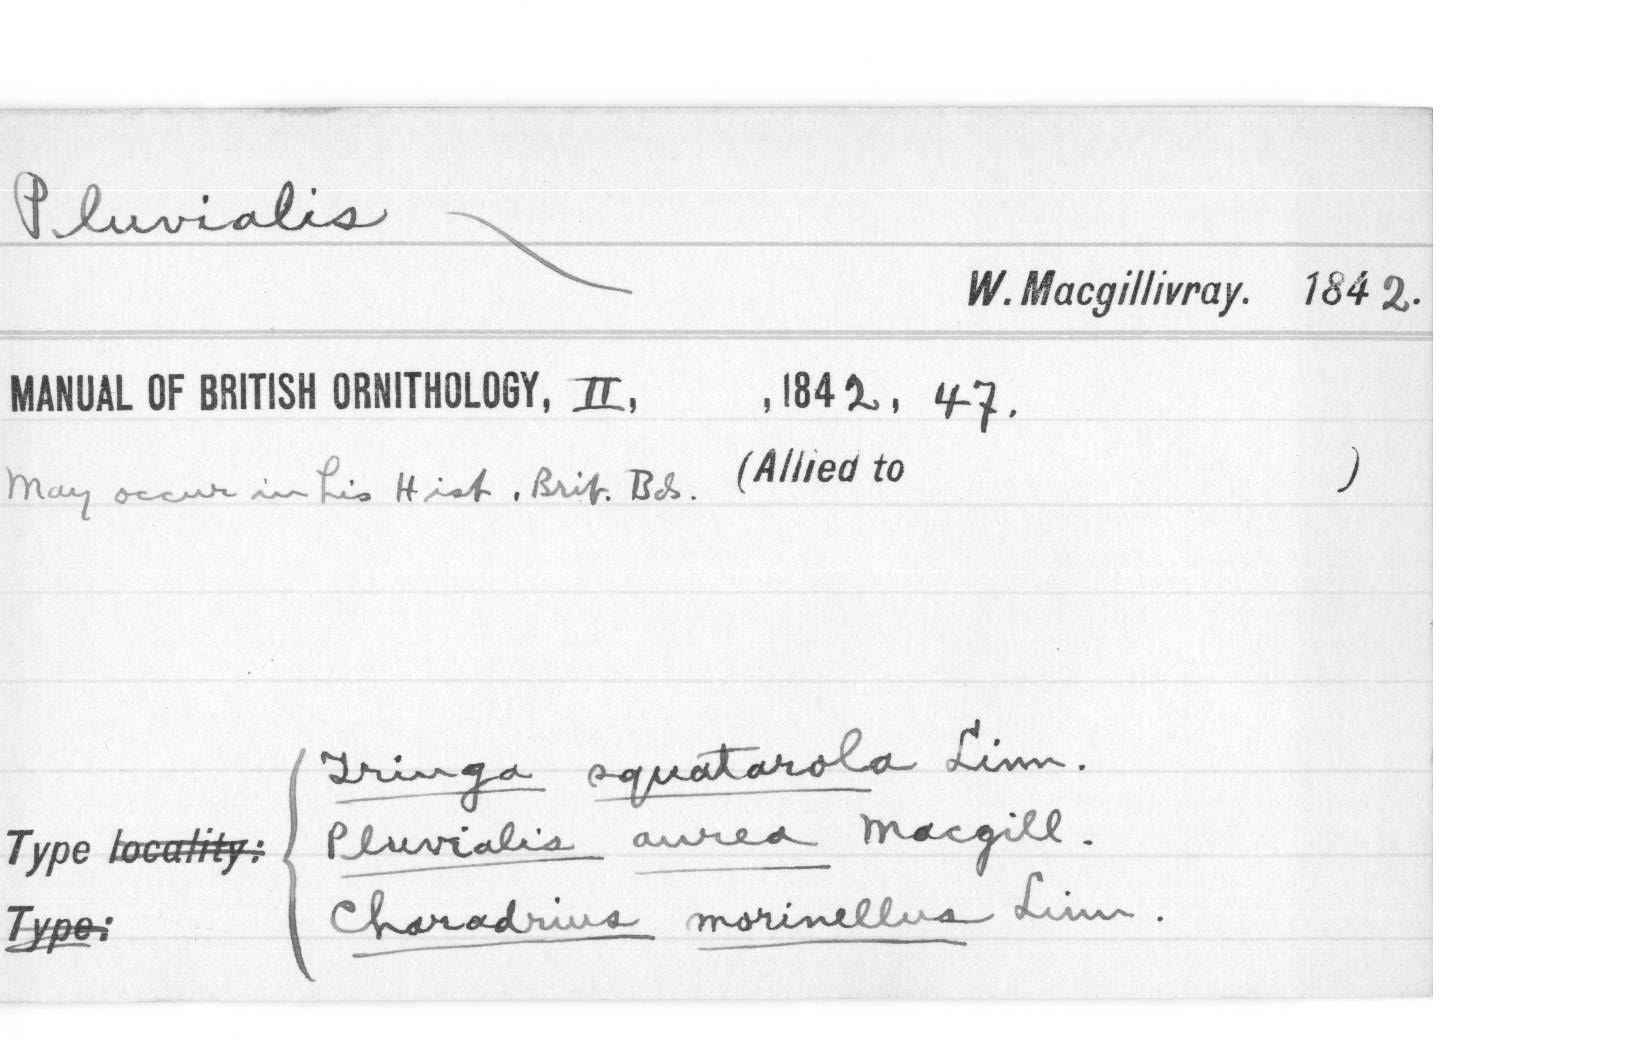 Pluvialis
W. Macgillivray. 1842.
MANUAL OF BRITISH ORNITHOLOGY, II, , 1842, 47.
May occur in his Hist. Brit. Bds. (Allied to )
Tringa squatarola Linn.
Type locality: Pluvialis aurea Macgill.
Type: Charadrius morinellus Linn.